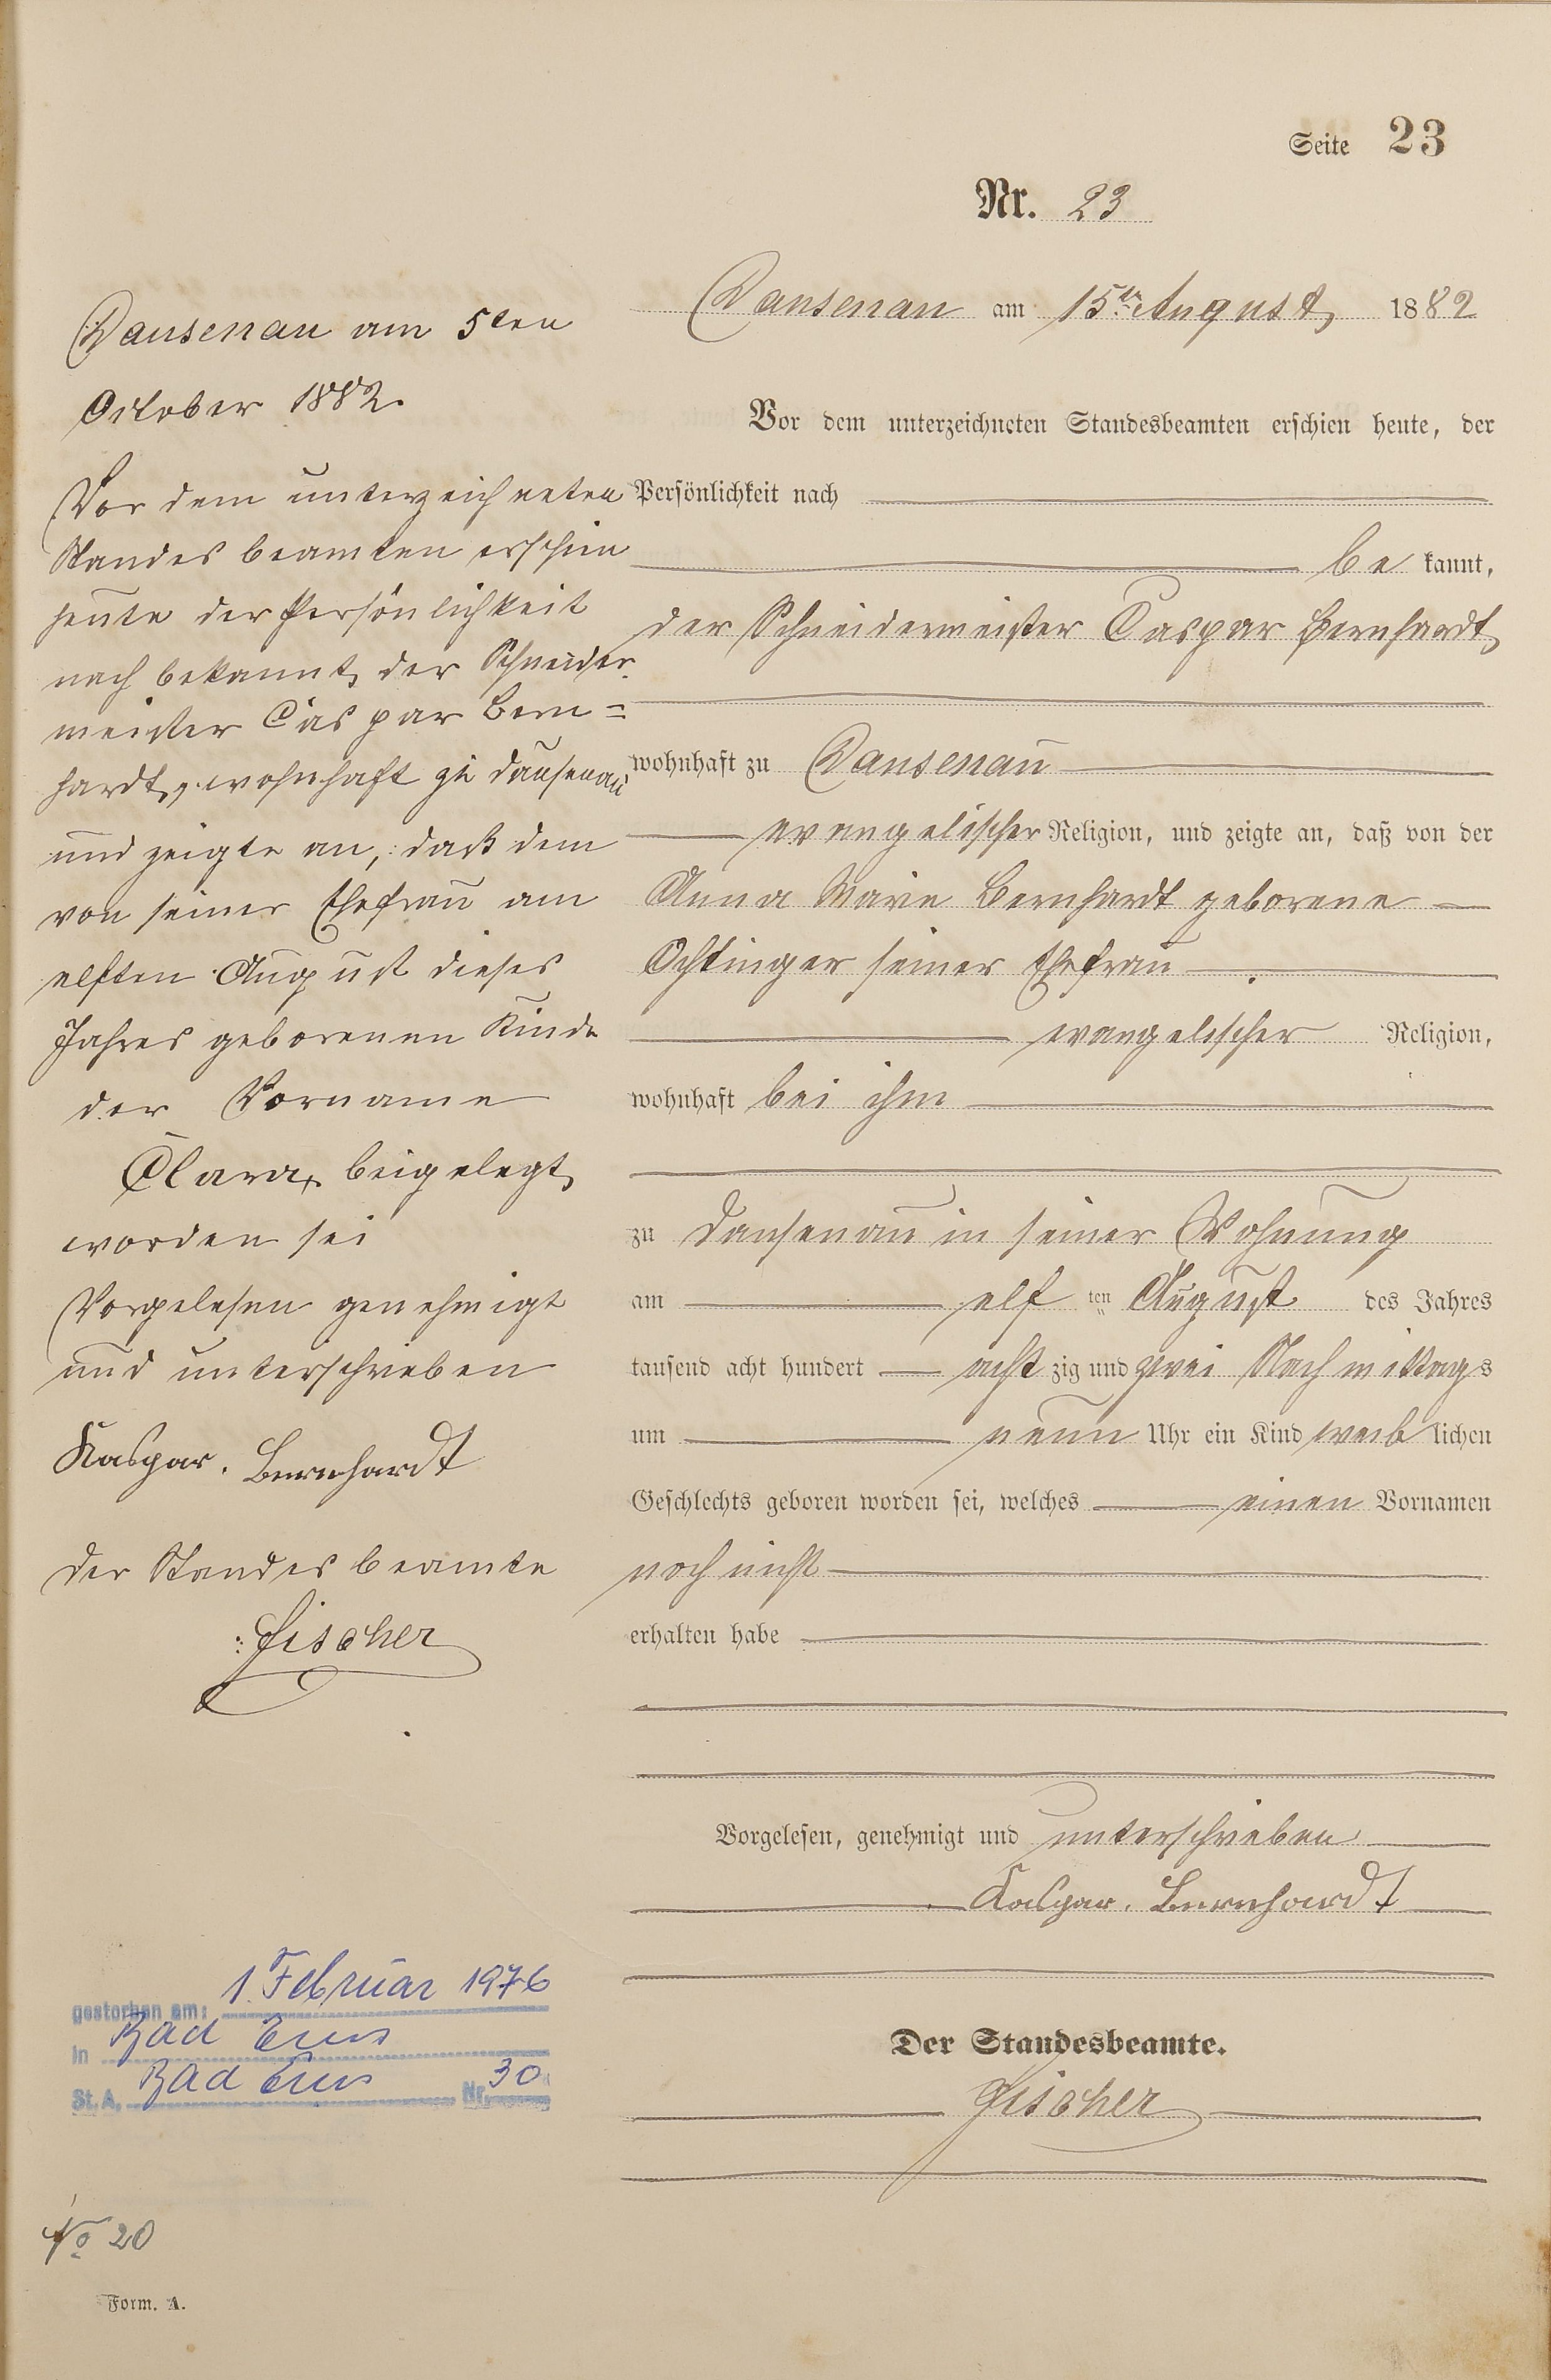 Seite 23
Nr. 23
Dausenau am 15ten August 1882
Vor dem unterzeichneten Standesbeamten erschien heute, der
Persönlichkeit nach
be kannt,
der Schneidermeister Caspar Bernhardt
wohnhaft zu Dausenau
evangelischer Religion, und zeigte an, daß von der
Anna Marie Bernhardt geborene
Ochtinger seiner Ehefrau
evangelischer Religion,
wohnhaft bei ihm
zu Dausenau in seiner Wohnung
am elf ten August des Jahres
tausend acht hundert acht zig und zwei Nachmittags
um neun Uhr ein Kind weib lichen
Geschlechts geboren worden sei, welches einen Vornamen
noch nicht
erhalten habe
Vorgelesen, genehmigt und unterschrieben
Kaspar. Bernhardt
Der Standesbeamte.
Fischer
Dausenau am 5ten
October 1882.
Vor dem unterzeichneten
Standesbeamten erschien
heute der Persönlichkeit
nach bekannt, der Schneider
meister Caspar Bern=
hardt, wohnhaft zu Dausenau
und zeigte an, daß dem
von seiner Ehefrau am
elften August dieses
Jahres geborenen Kinde
der Vorname
Clara, beigelegt
worden sei
Vorgelesen genehmigt
und unterschrieben
Kaspar. Bernhardt
Der Standesbeamte
Fischer
gestorben am: 1. Februar 1976
in Bad Ems
St. A. Bad Ems Nr. 30
No 20
Form. A.